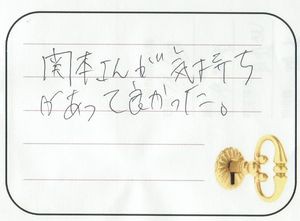 関本さんが気持ち
があって良かった。